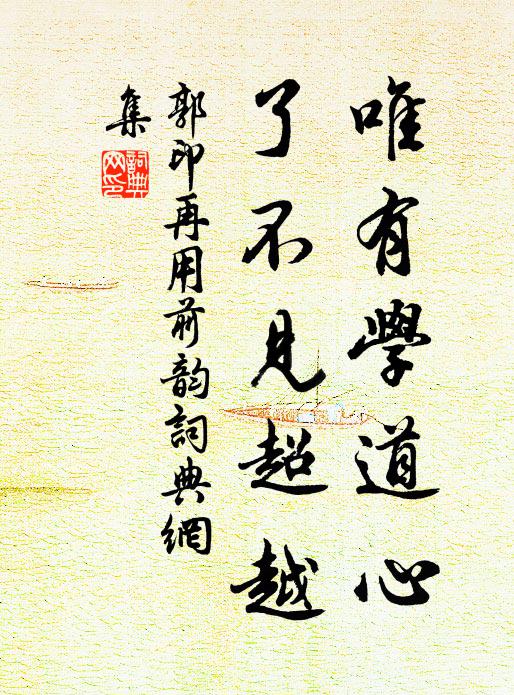 唯有學道心
了不見超越
郭印再用前韵詞典網
集
詞典网印